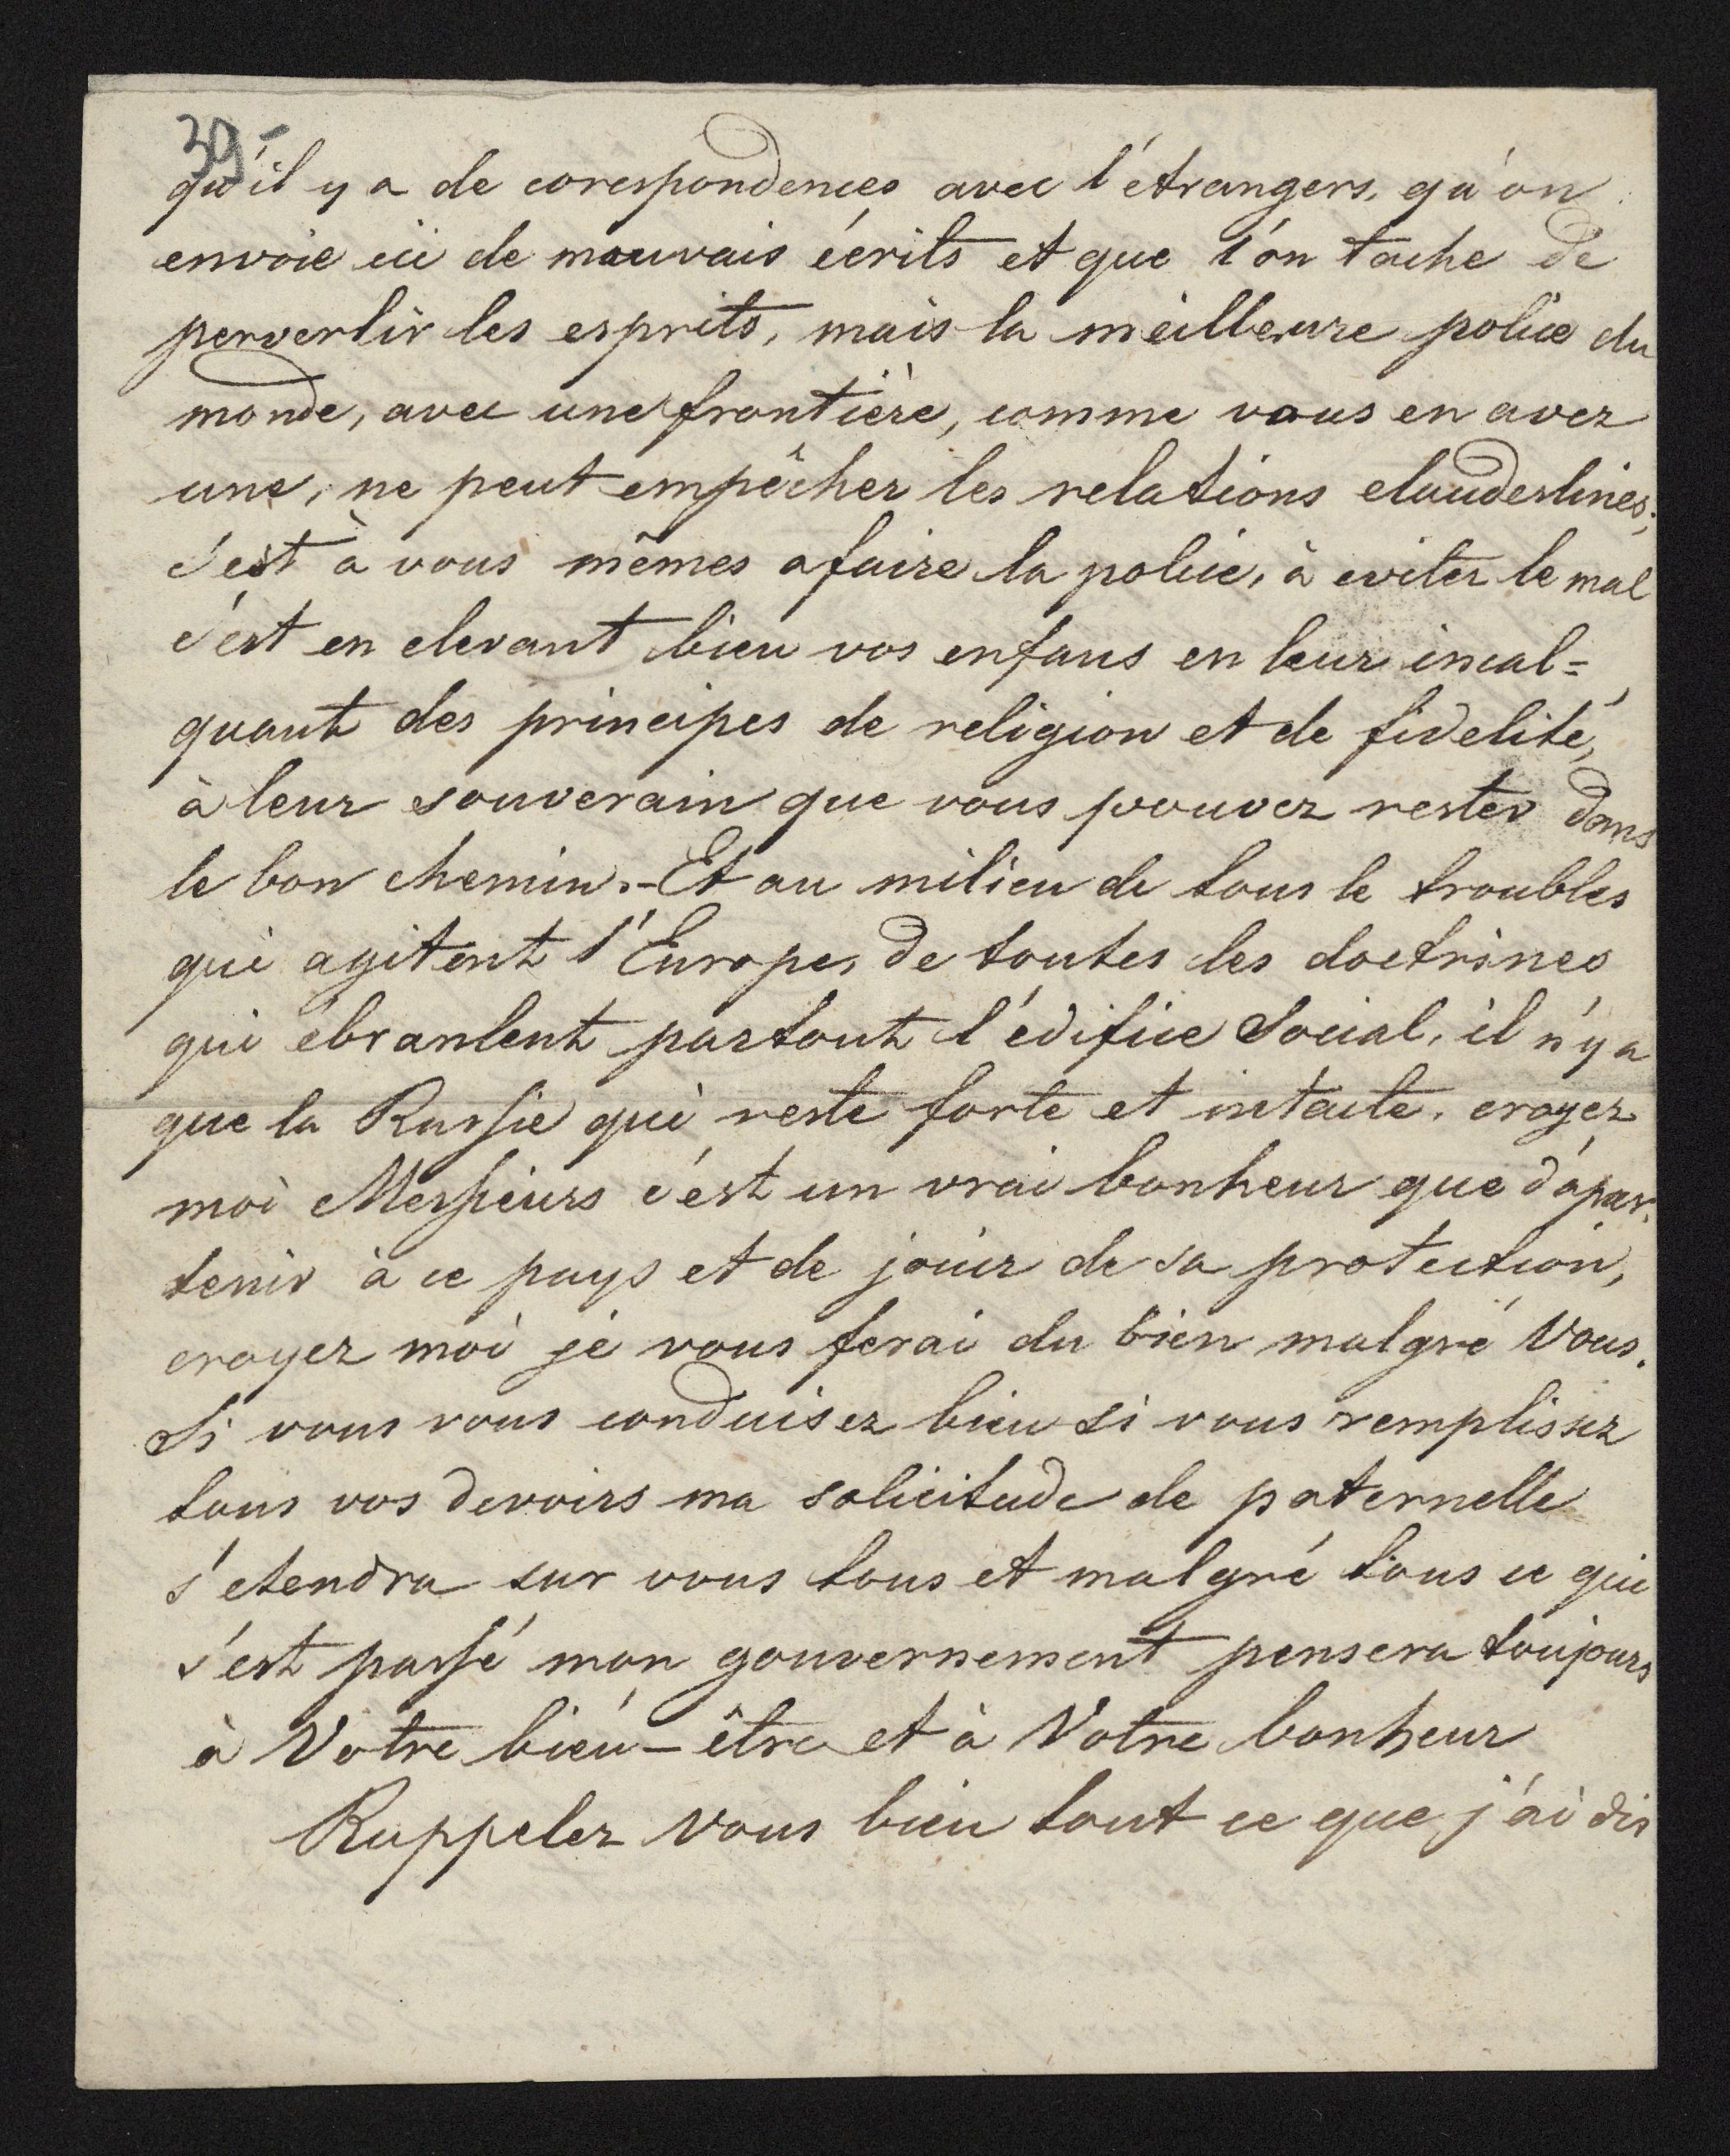 39-
qu'il y a de corespondences avec l'étrangers, qu'on
envoie ici de mauvais écrits et que l'on tache de
pervertir les esprits, mais la meilleure police du
monde, avec une frontière, comme vous en avez
une, ne peut empêcher les relations clandestines;
c'est à vous mêmes a faire la police, à eviter le mal
c'est en elevant bien vos enfans en leur incal=
quant des principes de religion et de fidelité,
à leur souverain que vous pouvez rester dans
le bon chemin.- Et au milieu de tous le troubles
qui agitent l'Europe, de toutes les doctrines
qui ébranlent partout l'édifice social, il n'y a
que la Russie qui reste forte et intacte, croyez
moi Messieurs c'est un vrai bonheur que d'apar-
tenir à ce pays et de jouir de sa protection,
croyez moi je vous ferai du bien malgré Vous.
Si vous vous conduisez bien si vous remplissez
tous vos devoirs ma solicitude de paternelle
s'etendra sur vous tous et malgré tous ce qui
s'est passé mon gouvernement pensera toujours
à Votre bien-être et à Votre bonheur
Rappelez Vous bien tout ce que j'ai dis